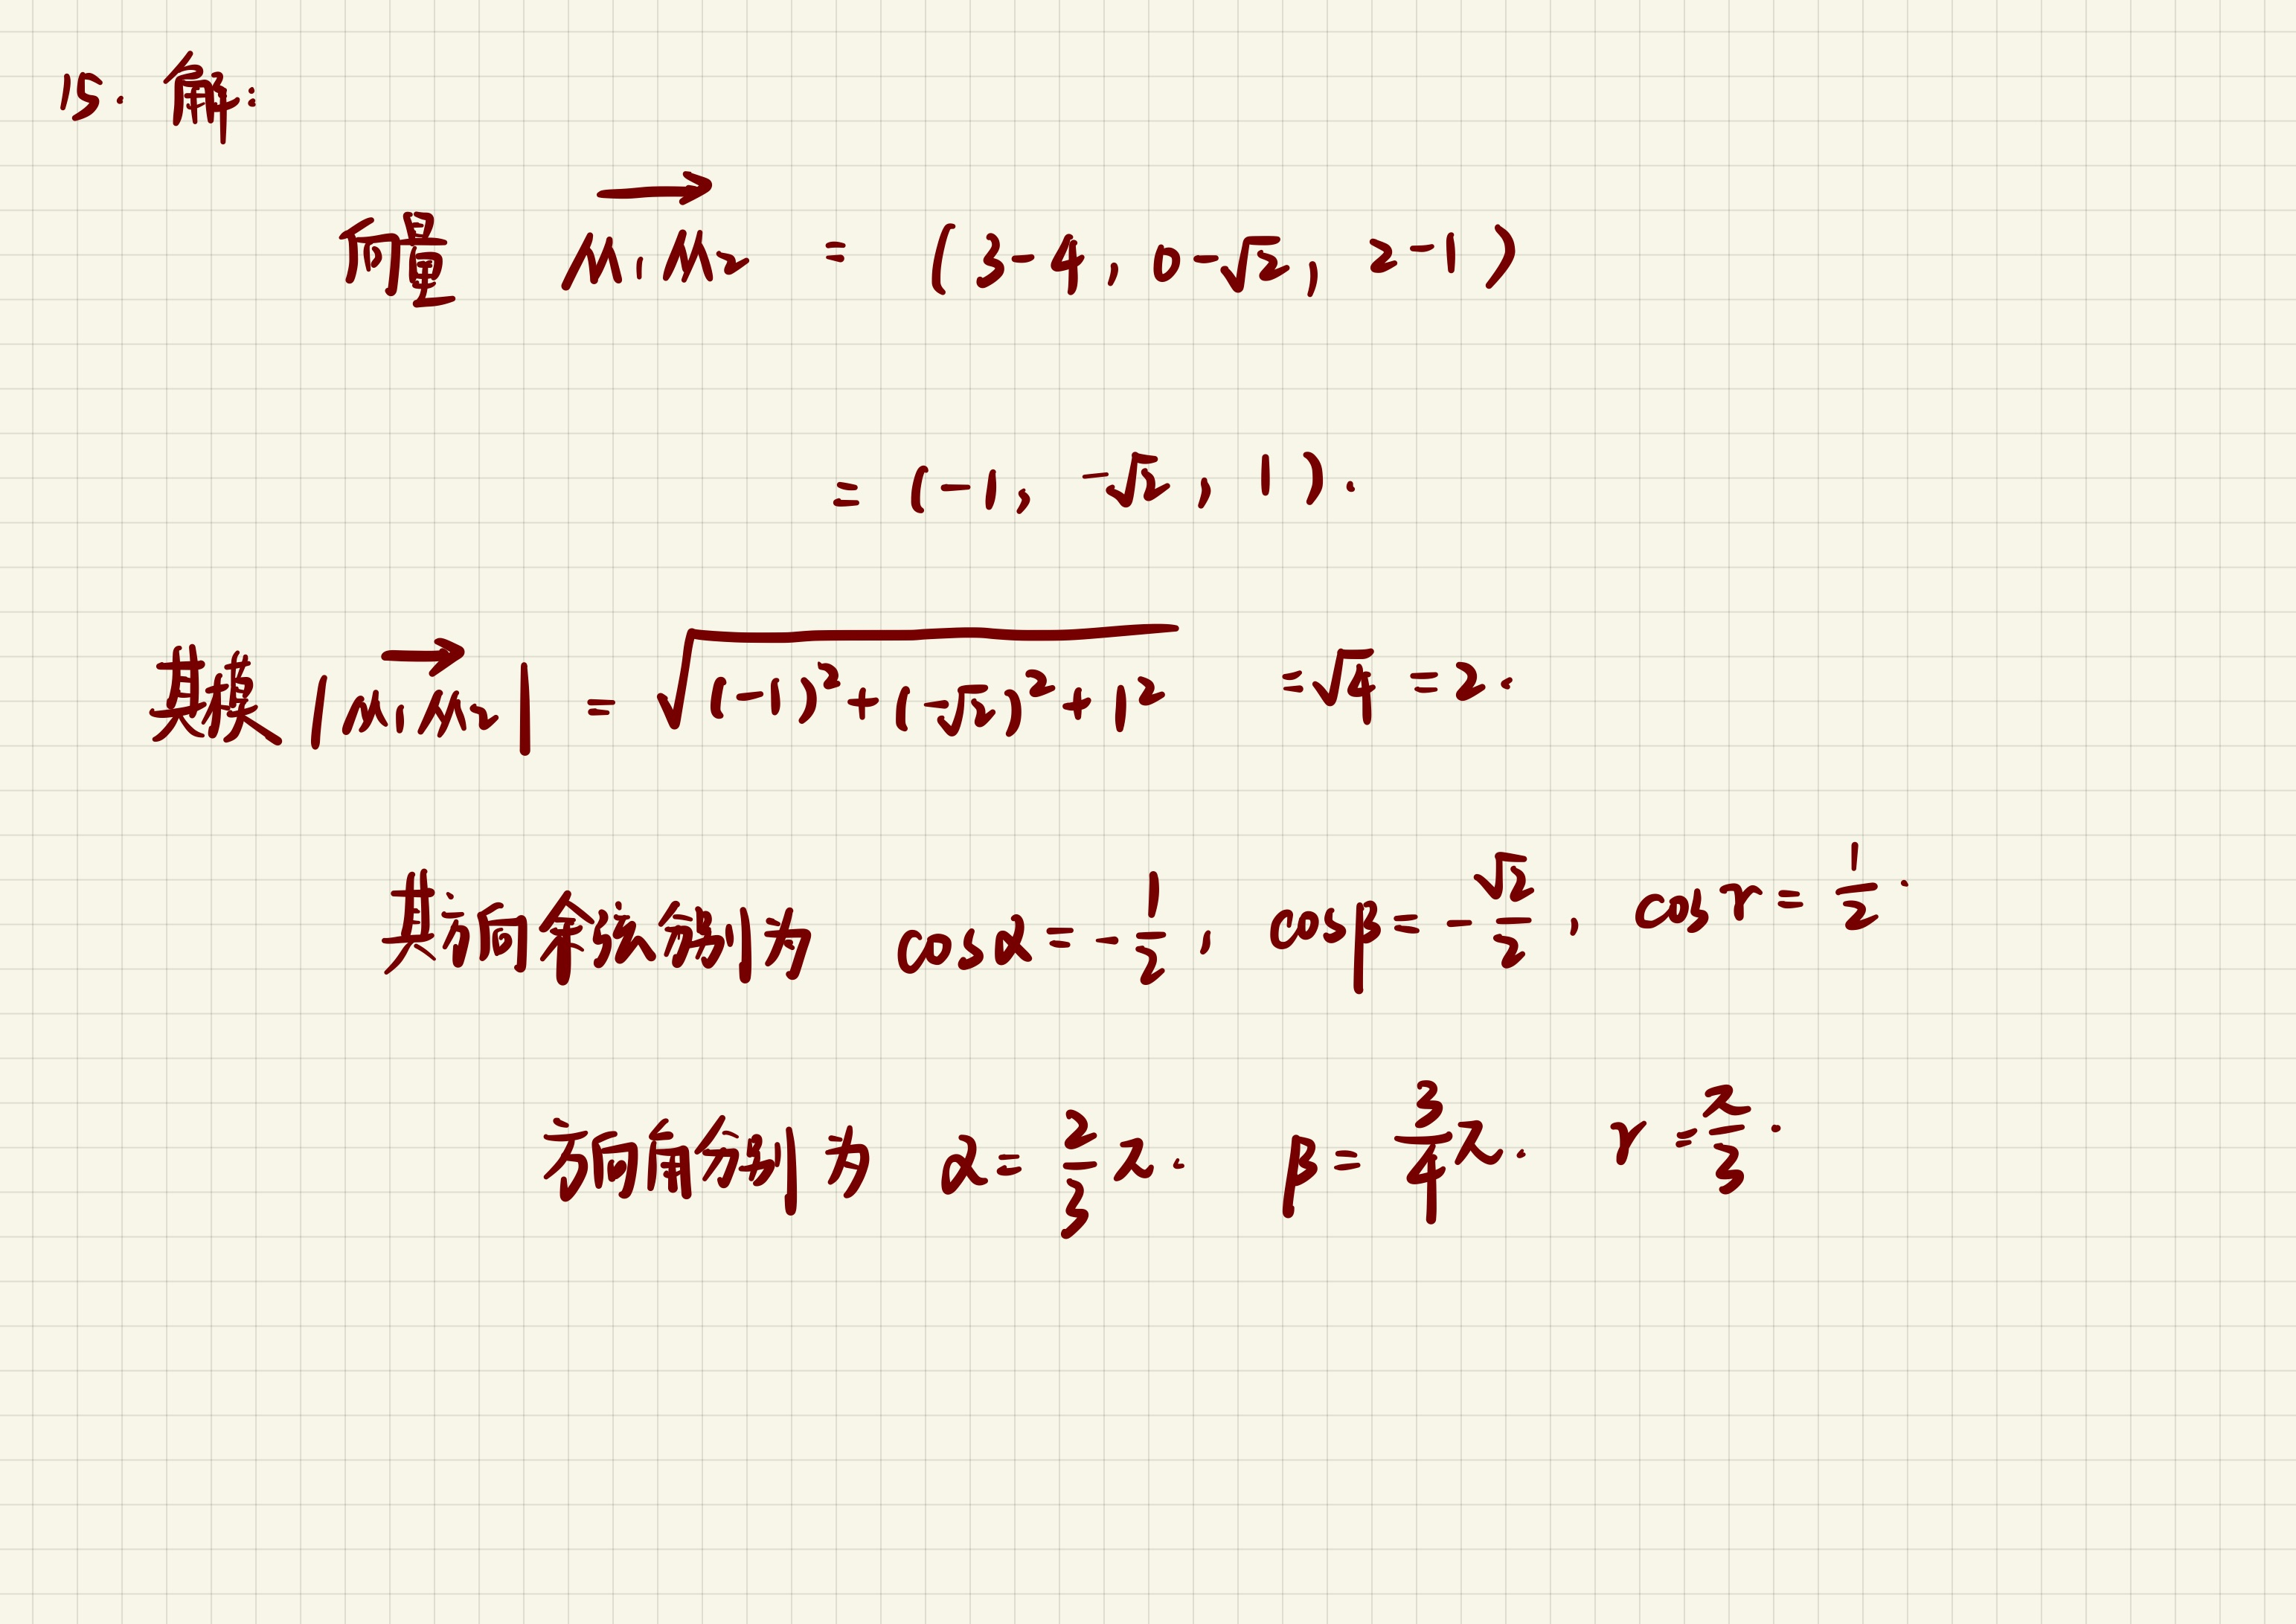 15. 解:
向量 $\overrightarrow{M_1M_2}$ = (3-4, 0-√2, 2-1)
= (-1, -√2, 1).
其模 |$\overrightarrow{M_1M_2}$| = $\sqrt{(-1)^2+(-\sqrt{2})^2+1^2}$ = √4 = 2.
其方向余弦分别为 cosα = -$\frac{1}{2}$, cosβ = -$\frac{\sqrt{2}}{2}$, cosγ = $\frac{1}{2}$.
方向角分别为 α = $\frac{2}{3}$π. β = $\frac{3}{4}$π. γ = $\frac{π}{3}$.